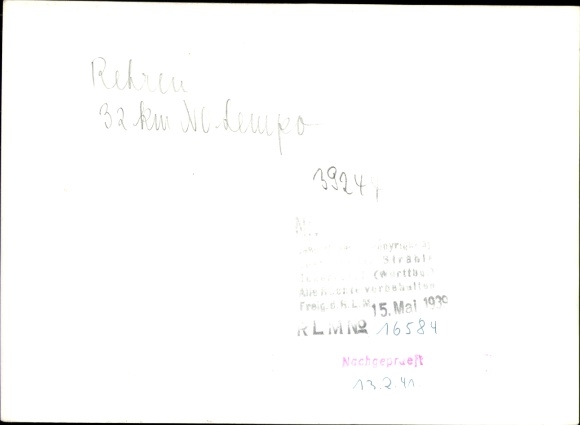 Rehren
32 km NO Lemgo
39244
Copyright by
Strähle
(Württbg.)
Alle Rechte vorbehalten
Freig. d. R.L.M. 15. Mai 1939
RLM No 16584
Nachgeprueft
13.2.41